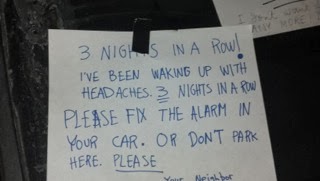 3 NIGHTS IN A ROW!
I'VE BEEN WAKING UP WITH
HEADACHES. 3 NIGHTS IN A ROW
PLEASE FIX THE ALARM IN
YOUR CAR. OR DON'T PARK
HERE. PLEASE
Your Neighbor